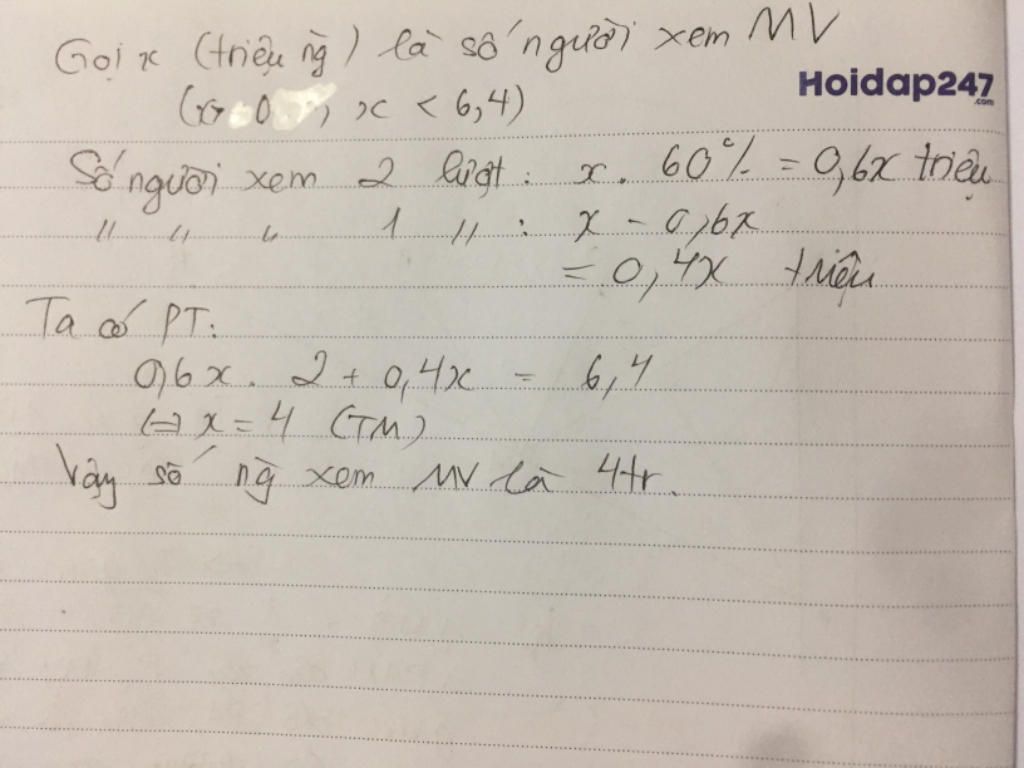 Gọi x (triệu ng) là số người xem MV
Hoidap247
.com
(x>0, x < 6,4)
Số người xem 2 lượt : x . 60% = 0,6x triệu
〃 〃 〃 1 〃 : x - 0,6x
= 0,4x triệu
Ta có PT:
0,6x . 2 + 0,4x = 6,4
<=> x = 4 (TM)
Vậy số ng xem MV là 4tr.